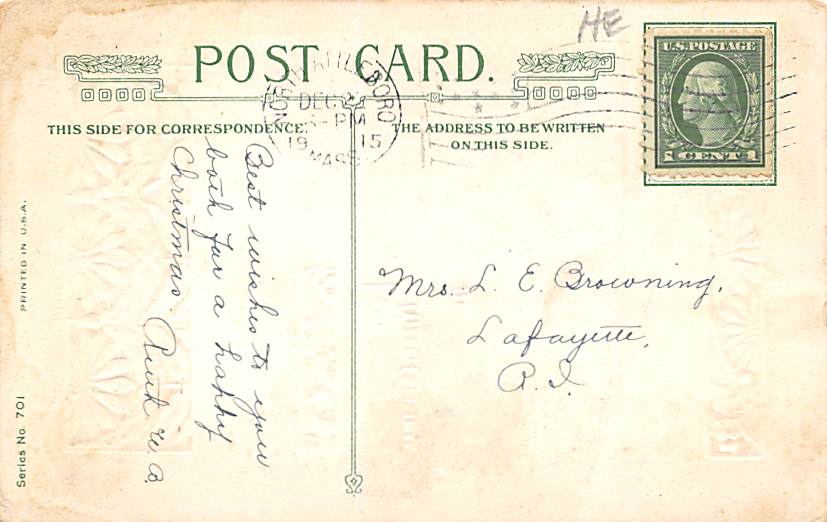 HE
POST CARD.
NORTH ATTLEBORO
DEC
5-PM
19 15
MASS.
U.S. POSTAGE
1 CENT 1
THIS SIDE FOR CORRESPONDENCE.
THE ADDRESS TO BE WRITTEN
ON THIS SIDE.
Best wishes to you
both for a happy
Christmas.
Ruth W. B.
Mrs. L. E. Browning,
Lafayette,
R. I.
PRINTED IN U.S.A.
Series No. 701